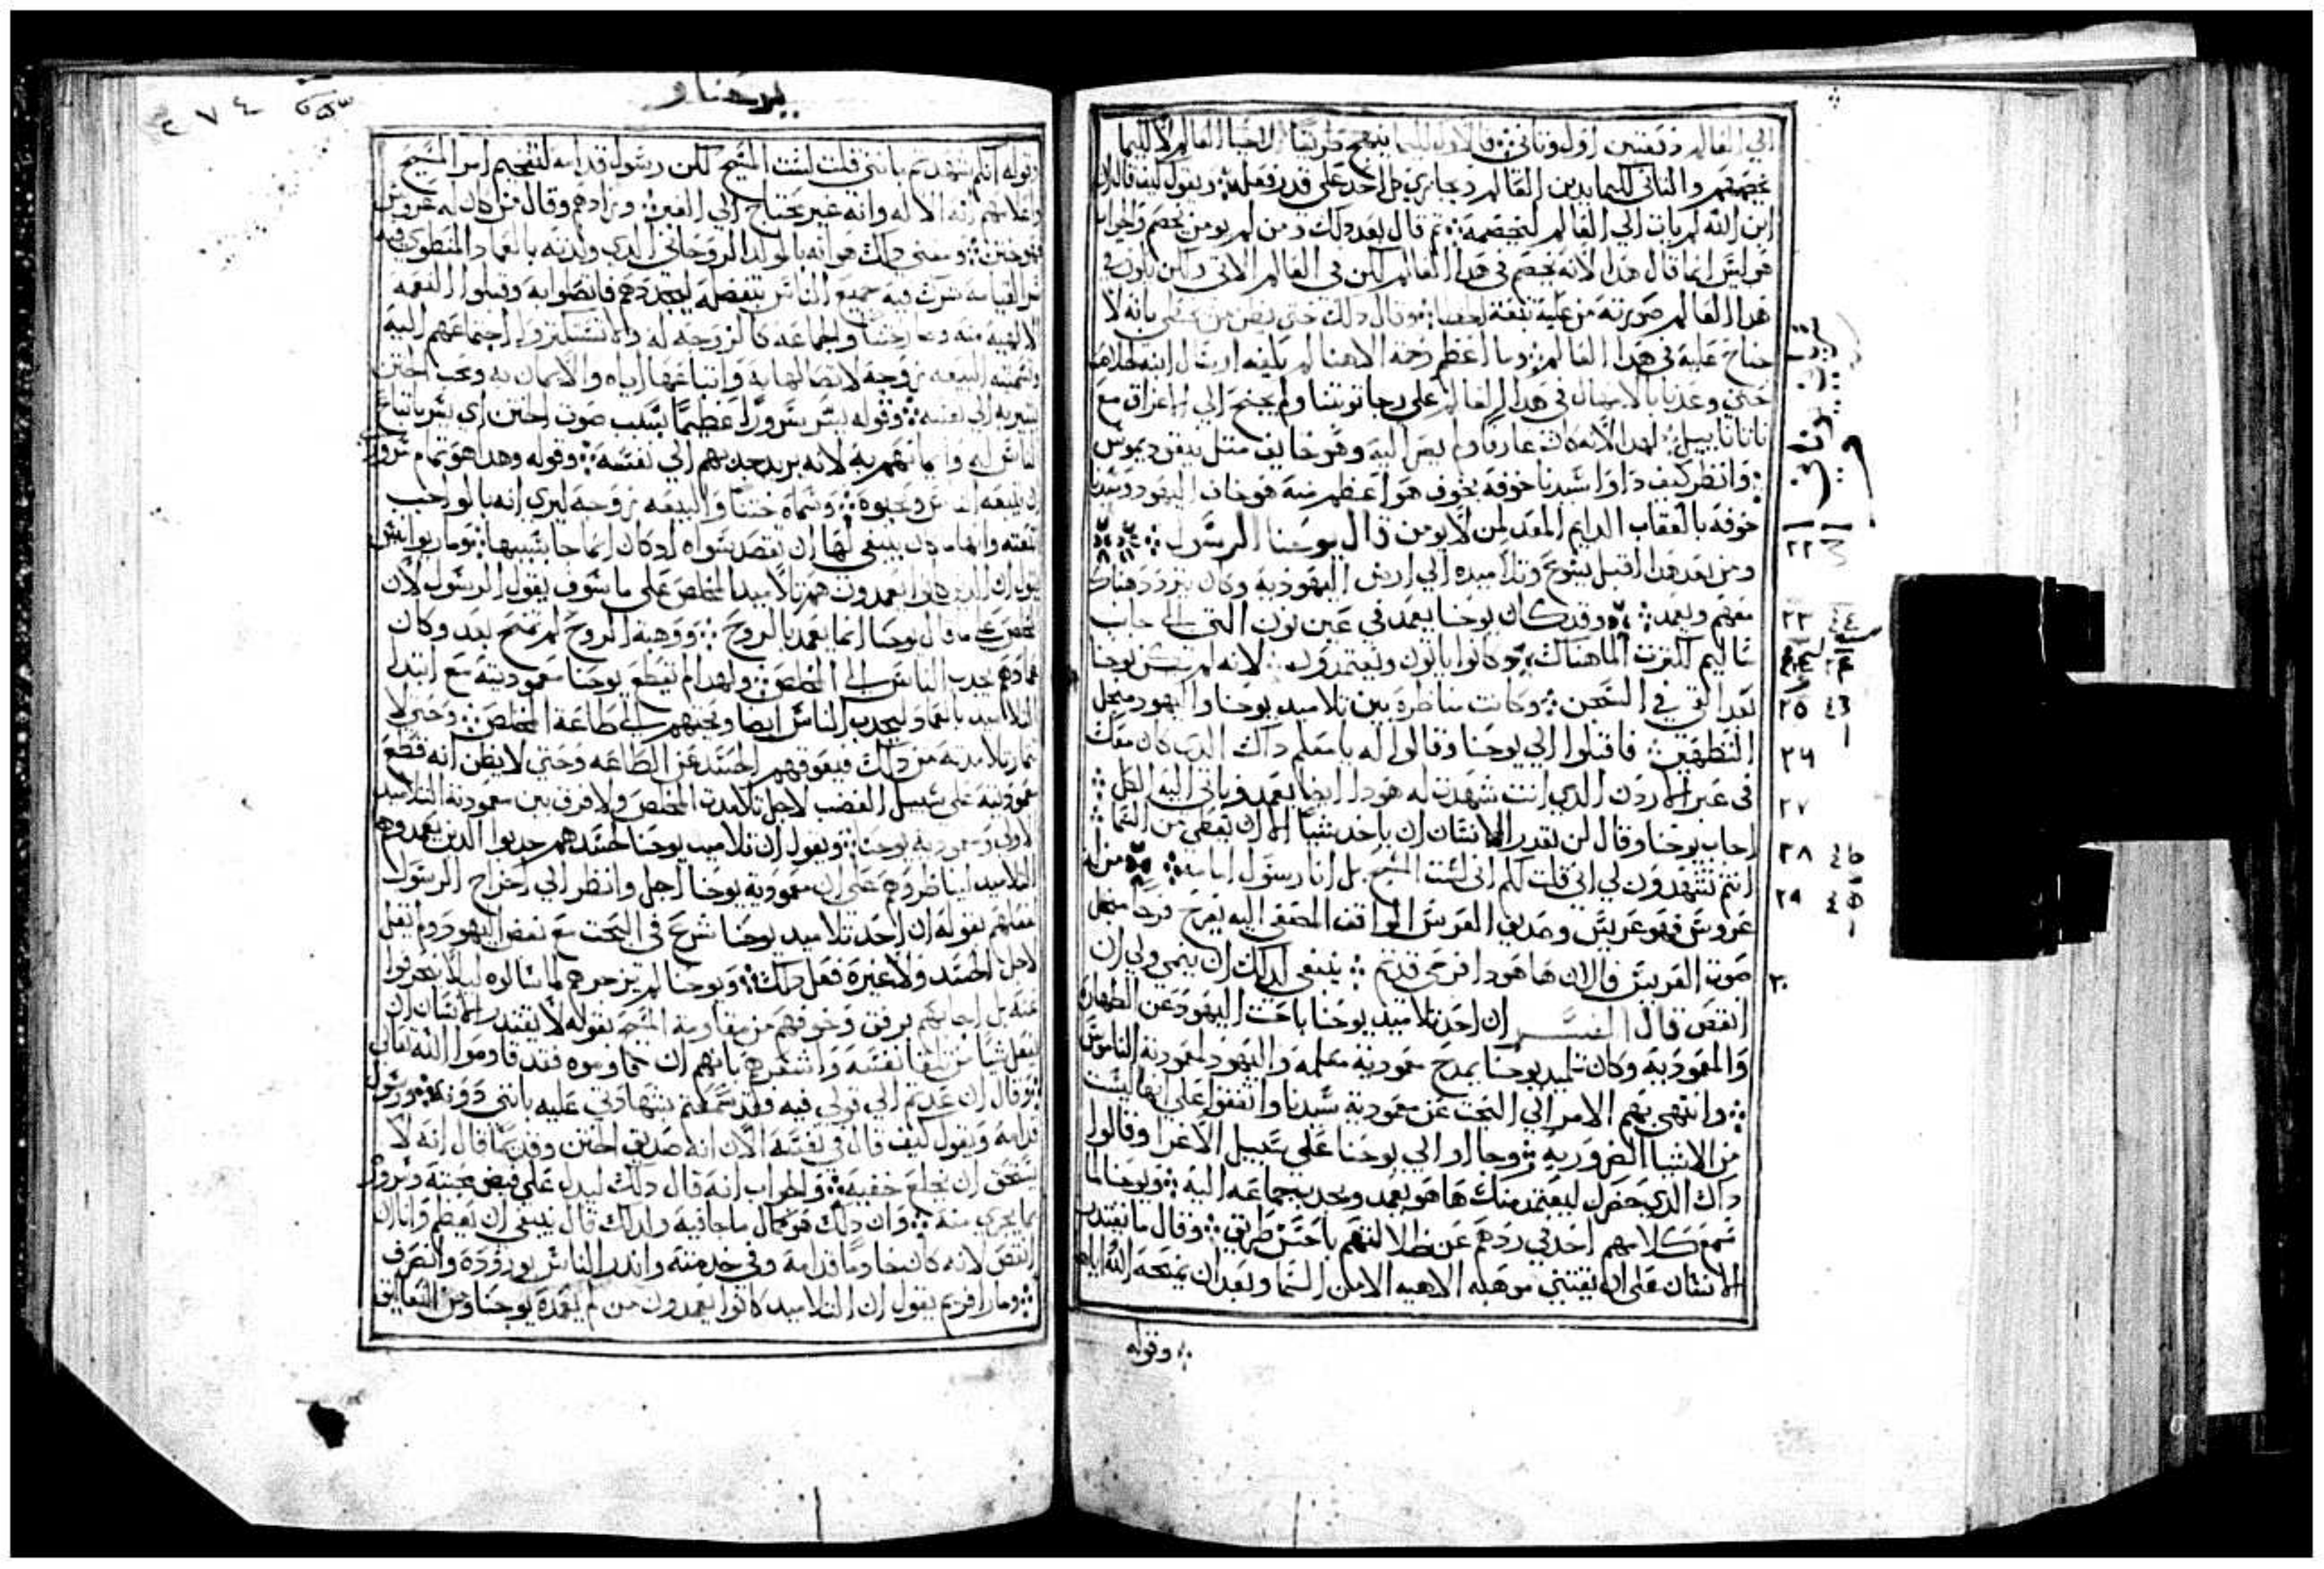 الي العالم دفعتين اول وثاني ⁘ فالاول ليما ينهج طريقا لاحيا العالم لا ليما
يخصمهم والثاني كليما يدين العالم ويجازي كل احد على قدر فعله ⁘ ونقول كيف قال ان
ابن الله لم يات الي العالم ليخصمه ⁘ ثم قال بعد ذلك ومن لم يومن يخصم والجواب
هو ليس انما قال هذا لانه يخصم في هذا العالم لكن في العالم الاتي
هذا العالم صورته من عليه تبعة لخطا ⁘ وقال ذلك حتى
جناح عليه في هذا العالم ⁘ وما اعظم رحمة الاهنا لم يكفه ارسال ابنه
حتى وعدنا بالامهال في هذا العالم على رجا توبتنا ولم يجنح الي
لهذا لانه كان عارفا ولم يصر اليه وهو خايف مثل نيقوديموس
⁘ وانظر كيف داوا سيدنا خوفه بخوف هو اعظم منه هو خاف اليهود وسيدنا
خوفه بالعقاب الدايم المعد لمن لا يومن قال يوحنا الرسول ⁘
ومن بعد هذا اقبل يسوع وتلاميذه الي ارض اليهودية وكان يتردد هناك
معهم ويعمد ⁘ وقد كان يوحنا يعمد في عين نون التي الي جانب
ساليم لكثرت الما هناك ⁘ وكانوا ياتون ويعتمدون ⁘ لانه لم يكن يوحنا
بعد القي في السجن ⁘ وكانت مناظرة بين تلاميذ يوحنا واليهود من اجل
التطهير ⁘ فاقبلوا الي يوحنا وقالوا له يا معلم ذاك الذي كان معك
في عبر الاردن الذي انت شهدت له هوذا ايضا يعمد وياتي اليه الكل ⁘
اجاب يوحنا وقال لن يقدر الانسان ان ياخذ شيا الا ان يعطي من السما ⁘
انتم تشهدون لي اني قلت لكم اني لست المسيح بل انا رسول امامه ⁘ من له
عروس فهو عريس وصديق العريس الواقف المصغي اليه يفرح فرحا من اجل
صوت العريس فالان ها هوذا فرحي قد تم ⁘ ينبغي لذلك ان ينمي ولي ان
انقص قال المفسر ان احد تلاميذ يوحنا باحث اليهود عن الطهارة
والمعمودية وكان تلميذ يوحنا يمدح معمودية معلمه واليهود لمعمودية الناموس
⁘ وانتهى بهم الامر الي البحث عن معمودية سيدنا واتفقوا على انها ليست
من الاشيا الضرورية ⁘ وجاوا الي يوحنا على سبيل الاغرا وقالوا
ذاك الذي حضر ليعتمد منك ها هو يعمد ويجذب جماعه اليه ⁘ ويوحنا لما
سمع كلامهم اخذ في ردهم عن ضلالتهم باحسن طريق ⁘ وقال ما يقتدر
الانسان على ان يقتني موهبه الاهيه الا من السما وبعد ان يمنحه الله اياها
⁘ وقوله
٢٢
٢٣
٢٤
٢٥
٢٦
٢٧
٢٨
٢٩
٣٠
يوحنا
٢٧٤
وقوله انكم شهدتم باني قلت لست المسيح لكن رسول قدامه لتفخيم امر المسيح
واعلامهم انه الاله وانه غير محتاج الي الغير ⁘ وزادهم وقال من كان له عروس
فهو ختن ⁘ ومعنى ذلك هو انه بالمولد الروحاني الذي ولدته بالعماد المنطوي فيه
سر القيامه شرك فيه جميع الناس بتفضله ليجددهم فاتصلوا به وقبلوا النعمه
الالهيه منه ودعا ختنا والجماعه كالزوجه له
وتسميته البيعه زوجه لاتصالها به واتباعها اياه والايمان به
يشير به الي نفسه ⁘ وقوله يسر سرورا عظيما بسبب صوت الختن اي يسر باتباع
الناس له وايمانهم به لانه يريد جذبهم الي نفسه ⁘ وقوله وهذا هو تمام سروري
ان يتبعه الناس ويحبوه ⁘ وسماه ختنا والبيعه زوجه ليري انه بالواجب
تتبعه وانه ما كان ينبغي لها ان تقصد سواه اذ كان انما جا بسببها
يقول ان الذين كانوا يعمدون هم تلاميذ المخلص على ما سوف يقول الرسول لان
المخلص على ما قال يوحنا انما يعمد بالروح ⁘ ووهبة الروح لم تمنح بعد وكان
عمادهم يجذب الناس الي المخلص ⁘ ولهذا لم يقطع يوحنا معموديته مع ابتدا
التلاميذ بالعماد ليجذب الناس ايضا ويحثهم الي طاعة المخلص ⁘ وحتى لا
تغار تلامذته من ذلك فيعوقهم الحسد عن الطاعه وحتى لا يظن انه قطع
معموديته على سبيل الغضب لاجل تلامذت المخلص ولا فرق بين معمودية التلاميذ
الاولى ومعمودية يوحنا ⁘ ونقول ان تلاميذ يوحنا لحسدهم جذبوا الذين يعمدوهم
التلاميذ ليناظروهم على ان معمودية يوحنا اجل وانظر الي اخراج الرسول
فعلهم بقوله ان احد تلاميذ يوحنا شرع في البحث مع بعض اليهود ولم يقل
لاجل الحسد ولا غيرة فعل ذلك ⁘ ويوحنا لم يزجرهم لما سالوه ليلا يفرقوا
عنه بل اجابهم برفق وخوفهم من مقاومة المسيح بقوله لا يقتدر الانسان ان
يفعل شيا من تلقا نفسه واشعرهم بانهم ان هم قاوموه فقد قاوموا الله تعالى
⁘ وقال ان عدتم الي قولي فيه وقد سمعتم شهادتي عليه بانني دونه ⁘ ورسول
قدامه ونقول كيف قال في نفسه الان انه صديق الختن وقديما قال انه لا
يستحق ان يخلع خفيه ⁘ والجواب انه قال ذلك ليدل على فيض محبته وسروره
بما يجري منه ⁘ وان ذلك هو كمال ما جا فيه ولذلك قال ينبغي ان يعظم وانا ان
انقص لانه كان خادما قدامه وفي خدمته وانذر الناس بوروده وانصرف
⁘ ومار افريم يقول ان التلاميذ كانوا يعمدون من لم يعمده يوحنا ومن التعاليق